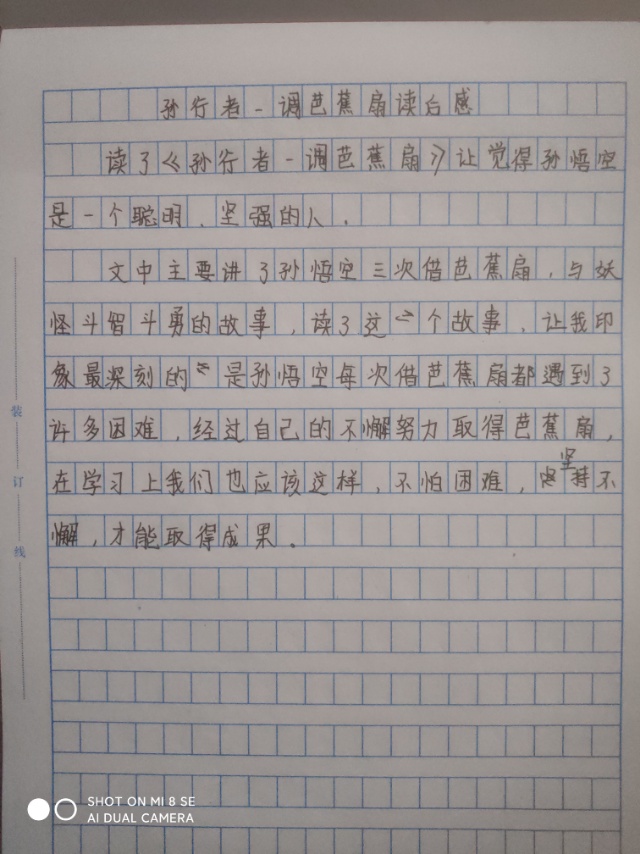 孙行者一调芭蕉扇读后感
读了《孙行者一调芭蕉扇》让觉得孙悟空
是一个聪明、坚强的人.
文中主要讲了孙悟空三次借芭蕉扇,与妖
怪斗智斗勇的故事,读了这个故事,让我印
象最深刻的是孙悟空每次借芭蕉扇都遇到了
许多困难,经过自己的不懈努力取得芭蕉扇,
在学习上我们也应该这样,不怕困难,坚持不
懈,才能取得成果.
装
订
线
SHOT ON MI 8 SE
AI DUAL CAMERA